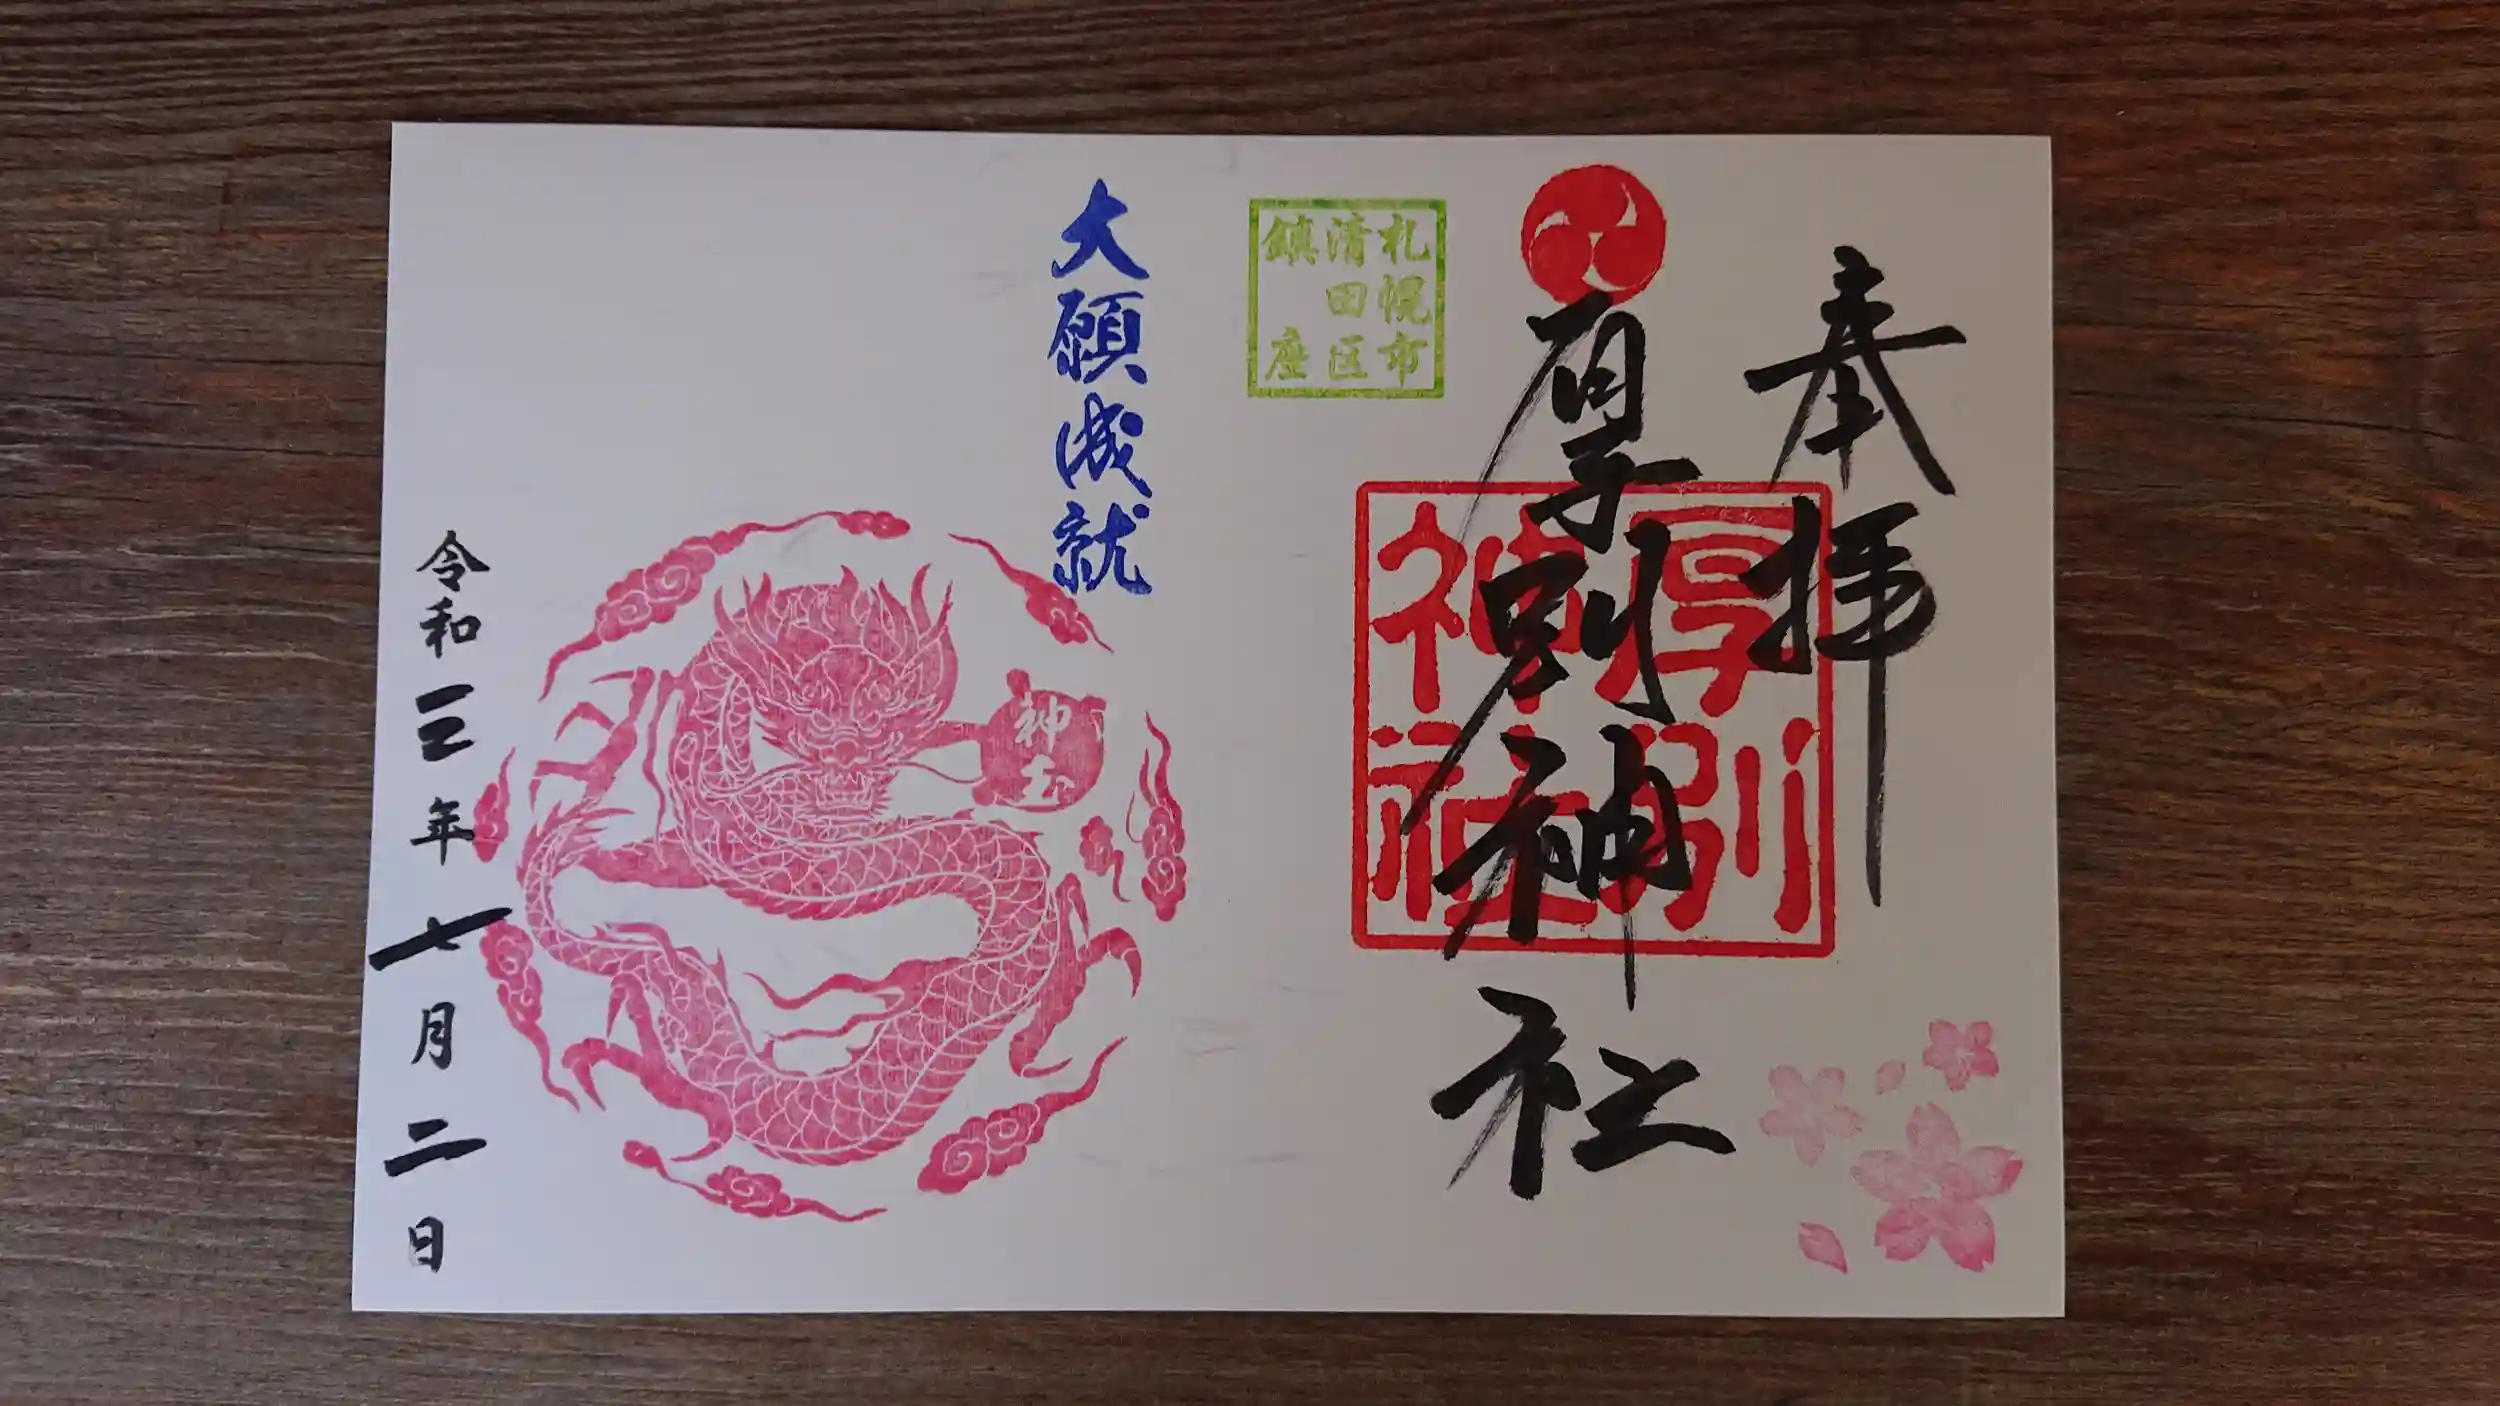 奉拝
厚別神社
厚別
神社
札幌市
清田区
鎮座
大願成就
神玉
令和三年七月二日